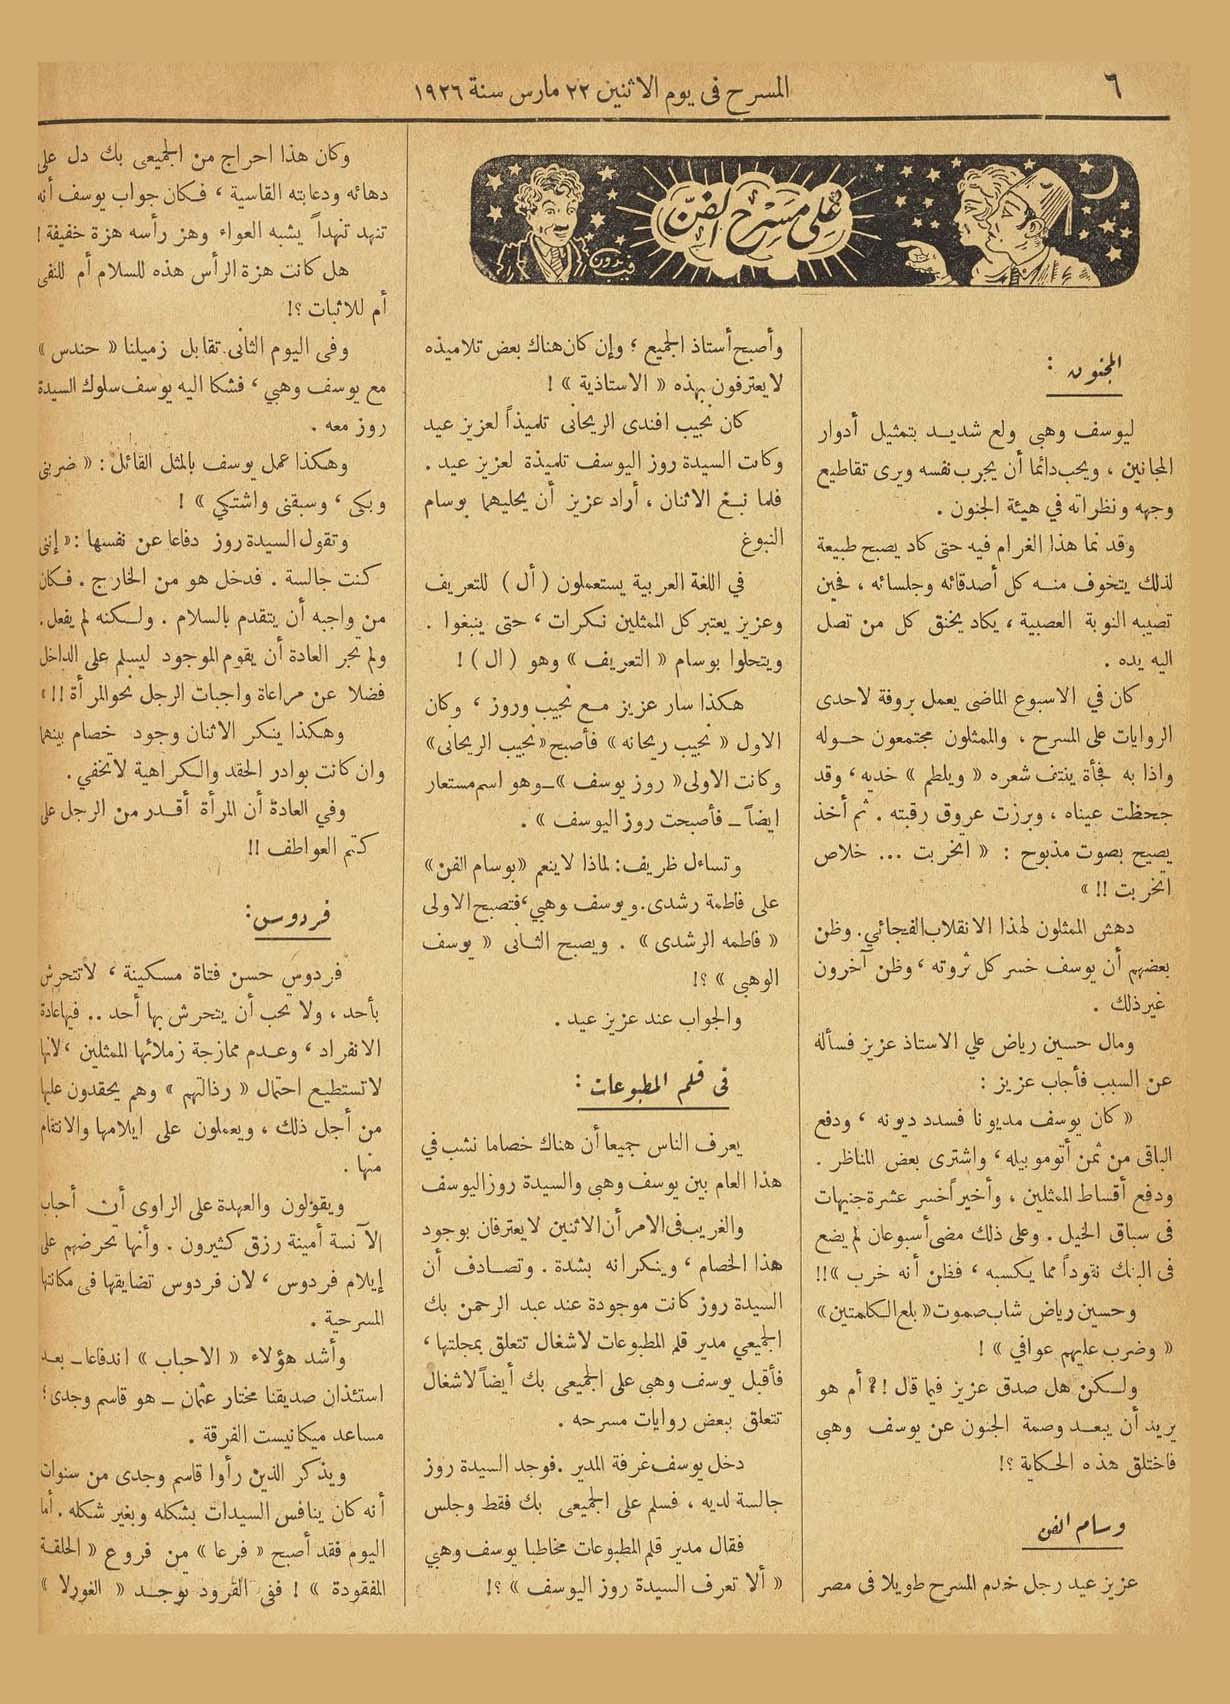 ٦
المسرح فى يوم الاثنين ٢٢ مارس سنة ١٩٢٦
على مسرح الفن
فيدون
المجنون :
ليوسف وهبى ولع شديد بتمثيل أدوار
المجانين ، ويحب دائما أن يجرب نفسه ويرى تقاطيع
وجهه ونظراته في هيئة الجنون .
وقد نما هذا الغرام فيه حتى كاد يصبح طبيعة
لذلك يتخوف منه كل أصدقائه وجلسائه ، فحين
تصيبه النوبة العصبية ، يكاد يخنق كل من تصل
اليه يده .
كان في الاسبوع الماضى يعمل بروفة لاحدى
الروايات على المسرح ، والممثلون مجتمعون حوله
واذا به فجأة ينتف شعره « ويلطم » خديه ، وقد
جحظت عيناه ، وبرزت عروق رقبته . ثم أخذ
يصيح بصوت مذبوح : « انخربت ... خلاص
انخربت !! »
دهش الممثلون لهذا الانقلاب الفجائي . وظن
بعضهم أن يوسف خسر كل ثروته ، وظن آخرون
غير ذلك .
ومال حسين رياض علي الاستاذ عزيز فسأله
عن السبب فأجاب عزيز :
« كان يوسف مديونا فسدد ديونه ، ودفع
الباقى من ثمن أتوموبيله ، واشترى بعض المناظر .
ودفع أقساط الممثلين ، وأخيراً خسر عشرة جنيهات
فى سباق الخيل . وعلى ذلك مضى أسبوعان لم يضع
فى البنك نقوداً مما يكسبه ، فظن أنه خرب » !!!
وحسين رياض شاب صموت « بلع الكلمتين »
« وضرب عليهم عوافي » !
ولكن هل صدق عزيز فيما قال !؟ أم هو
يريد أن يبعد وصمة الجنون عن يوسف وهبى
فاختلق هذه الحكاية ؟!
وسام الفن
عزيز عيد رجل خدم المسرح طويلا فى مصر
وأصبح أستاذ الجميع ؛ وإن كان هناك بعض تلاميذه
لا يعترفون بهذه « الاستاذية » !
كان نجيب افندى الريحانى تلميذاً لعزيز عيد
وكانت السيدة روز اليوسف تلميذة لعزيز عيد .
فلما نبغ الاثنان ، أراد عزيز أن يحليهما بوسام
النبوغ
في اللغة العربية يستعملون ( أل ) للتعريف
وعزيز يعتبر كل الممثلين نكرات ، حتى ينبغوا .
ويتحلوا بوسام « التعريف » وهو ( ال ) !
هكذا سار عزيز مع نجيب وروز ، وكان
الاول « نجيب ريحانه » فأصبح « نجيب الريحانى »
وكانت الاولى « روز يوسف » ــ وهو اسم مستعار
ايضاً ــ فأصبحت روز اليوسف » .
وتساءل ظريف : لماذا لا ينعم « بوسام الفن »
على فاطمة رشدى . ويوسف وهبي ، فتصبح الاولى
« فاطمه الرشدى » . ويصبح الثانى « يوسف
الوهبى » ؟!
والجواب عند عزيز عيد .
فى قلم المطبوعات :
يعرف الناس جميعا أن هناك خصاما نشب في
هذا العام بين يوسف وهبى والسيدة روز اليوسف
والغريب فى الامر أن الاثنين لا يعترفان بوجود
هذا الخصام ، وينكرانه بشدة . وتصادف أن
السيدة روز كانت موجودة عند عبد الرحمن بك
الجميعي مدير قلم المطبوعات لاشغال تتعلق بمجلتها ،
فأقبل يوسف وهبى على الجميعى بك أيضاً لاشغال
تتعلق ببعض روايات مسرحه .
دخل يوسف غرفة المدير . فوجد السيدة روز
جالسة لديه ، فسلم على الجميعى بك فقط وجلس
فقال مدير قلم المطبوعات مخاطبا يوسف وهبي
« ألا تعرف السيدة روز اليوسف » ؟!
وكان هذا احراج من الجميعى بك دل على
دهائه ودعابته القاسية ، فكان جواب يوسف أنه
تنهد تنهداً يشبه العواء وهز رأسه هزة خفيفة !
هل كانت هزة الرأس هذه للسلام أم للنفى
أم للاثبات ؟!
وفى اليوم الثانى تقابل زميلنا « حندس »
مع يوسف وهبي ، فشكا اليه يوسف سلوك السيدة
روز معه .
وهكذا عمل يوسف بالمثل القائل : « ضربنى
وبكى ، وسبقنى واشتكي » !
وتقول السيدة روز دفاعا عن نفسها : « إننى
كنت جالسة . فدخل هو من الخارج . فكان
من واجبه أن يتقدم بالسلام . ولكنه لم يفعل .
ولم تجر العادة أن يقوم الموجود ليسلم على الداخل
فضلا عن مراعاة واجبات الرجل نحو المرأة !! »
وهكذا ينكر الاثنان وجود خصام بينهما
وان كانت بوادر الحقد والكراهية لا تخفي .
وفي العادة أن المرأة أقدر من الرجل على
كتم العواطف !!
فردوس :
فردوس حسن فتاة مسكينة ، لا تتحرش
بأحد ، ولا تحب أن يتحرش بها أحد .. فيها عادة
الانفراد ، وعدم ممازجة زملائها الممثلين ، لانها
لا تستطيع احتمال « رذالتهم » وهم يحقدون عليها
من أجل ذلك ، ويعملون على ايلامها والانتقام
منها .
ويقولون والعهدة على الراوى أن أحباب
الآنسة أمينة رزق كثيرون . وأنها تحرضهم على
إيلام فردوس ، لان فردوس تضايقها فى مكانتها
المسرحية .
وأشد هؤلاء « الاحباب » اندفاعا ــ بعد
استئذان صديقنا مختار عثمان ــ هو قاسم وجدى ؛
مساعد ميكانيست الفرقة .
ويذكر الذين رأوا قاسم وجدى من سنوات
أنه كان ينافس السيدات بشكله وبغير شكله . أما
اليوم فقد أصبح « فرعا » من فروع « الحلقة
المفقودة » ! ففى القرود يوجد « الغورلا »